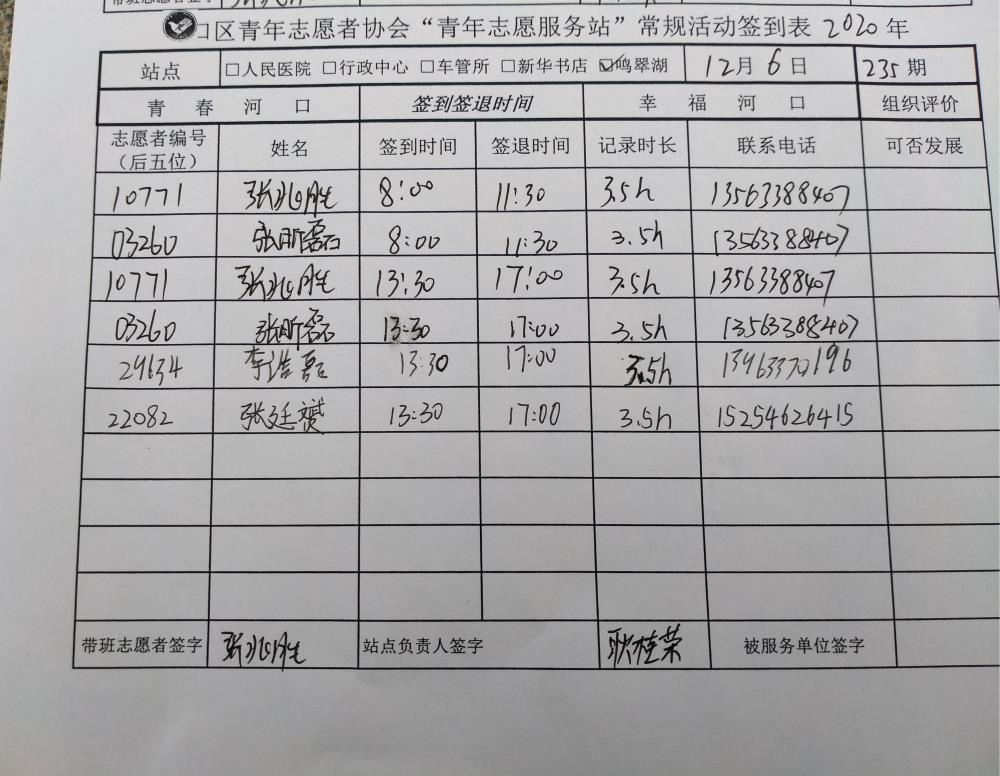 口区青年志愿者协会“青年志愿服务站”常规活动签到表 2020年
站点 □人民医院 □行政中心 □车管所 □新华书店 ☑鸣翠湖 12月6日 235期
青春河口 签到签退时间 幸福河口 组织评价
志愿者编号（后五位） 姓名 签到时间 签退时间 记录时长 联系电话 可否发展
10771 张兆胜 8:00 11:30 3.5h 13563388407
03260 张昕磊 8:00 11:30 3.5h 13563388407
10771 张兆胜 13:30 17:00 3.5h 13563388407
03260 张昕磊 13:30 17:00 3.5h 13563388407
29634 李浩磊 13:30 17:00 3.5h 13963370196
22082 张廷赟 13:30 17:00 3.5h 15254626415
带班志愿者签字 张兆胜 站点负责人签字 耿桂荣 被服务单位签字